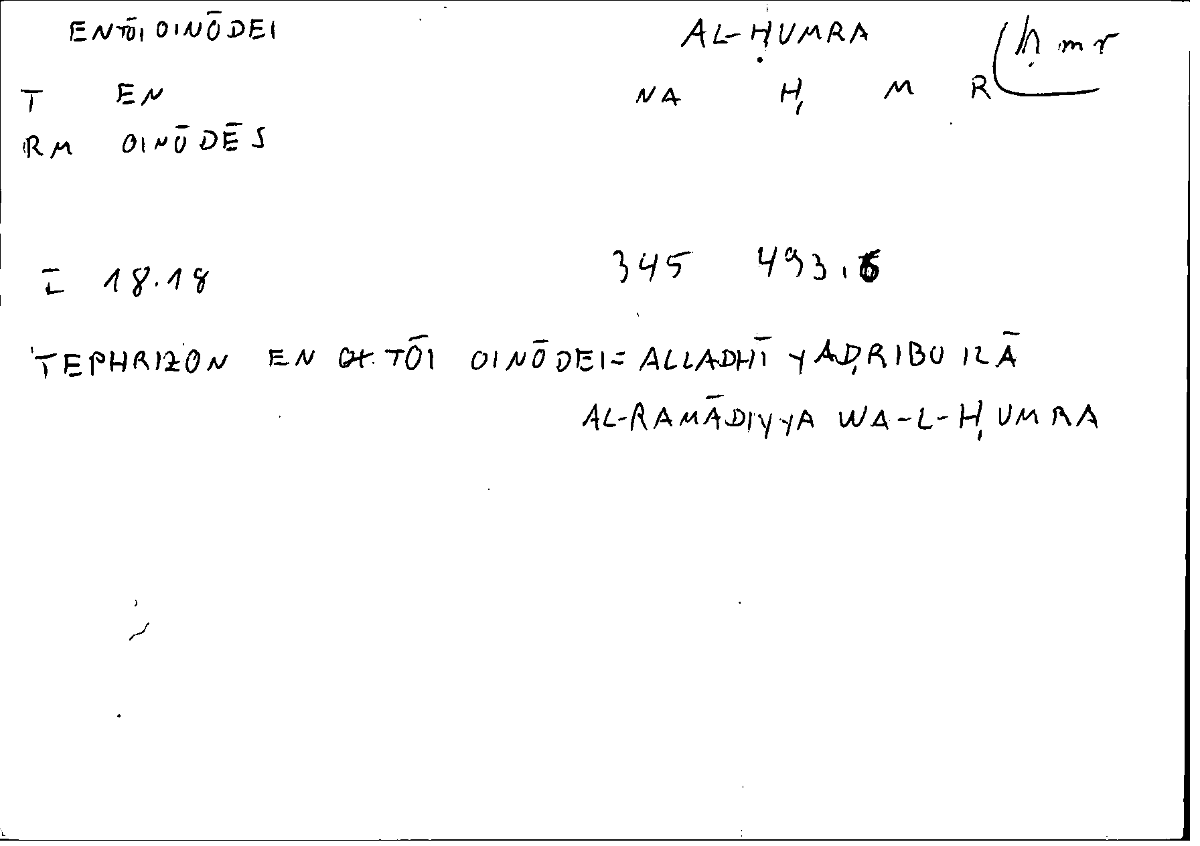 ENTŌI OINŌDEI AL-ḤUMRA ḥmr
T EN NA Ḥ M R
RM OINŌDĒS
I 18.18 345 493.6
TEPHRIZON EN TŌI OINŌDEI = ALLADHĪ YAḌRIBU ILĀ
AL-RAMĀDIYYA WA-L-ḤUMRA